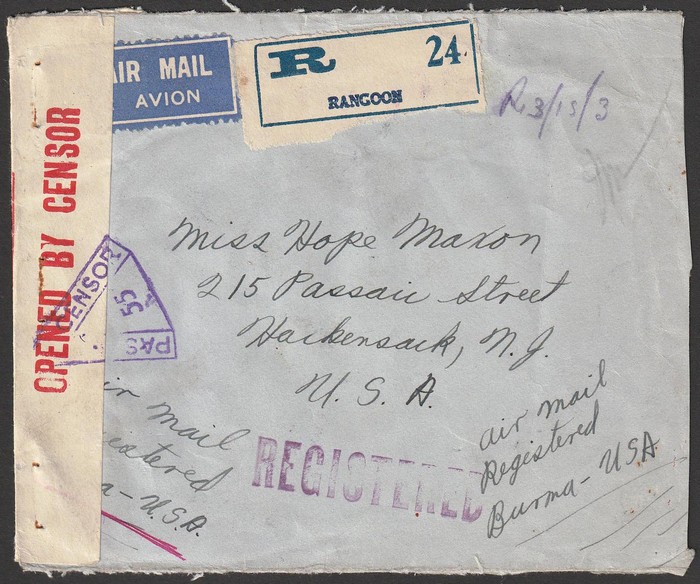 AIR MAIL
AVION
R 24
RANGOON
R3/15/3
OPENED BY CENSOR
PAS
CENSOR
55
Miss Hope Maxon
215 Passaic Street
Hackensack, N.J.
U. S. A.
air mail
Registered
Burma - USA
air mail
istered
a - U.S.A.
REGISTERED